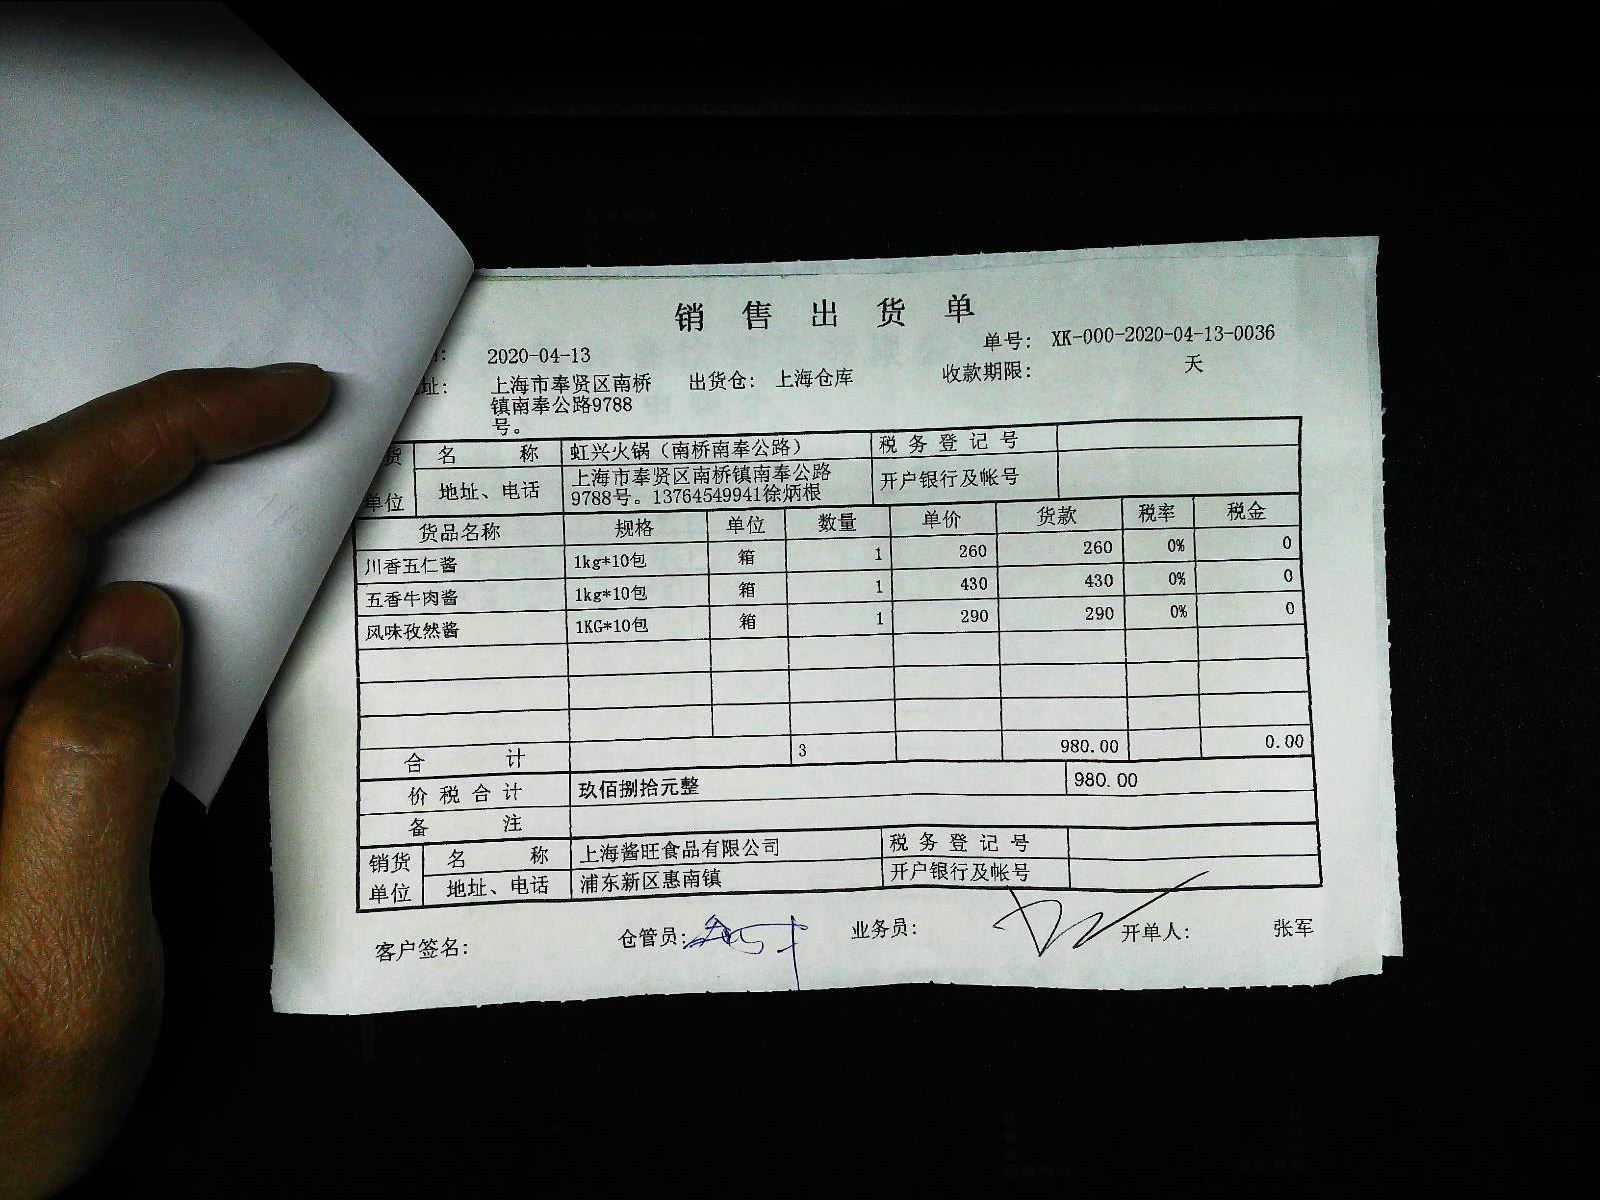 销售出货单
2020-04-13 单号: XK-000-2020-04-13-0036
址: 上海市奉贤区南桥 出货仓: 上海仓库 收款期限: 天
镇南奉公路9788
号。
货 名称 虹兴火锅(南桥南奉公路) 税务登记号
单位 地址、电话 上海市奉贤区南桥镇南奉公路 开户银行及帐号
9788号。13764549941徐炳根
货品名称 规格 单位 数量 单价 货款 税率 税金
川香五仁酱 1kg*10包 箱 1 260 260 0% 0
五香牛肉酱 1kg*10包 箱 1 430 430 0% 0
风味孜然酱 1KG*10包 箱 1 290 290 0% 0
合计 3 980.00 0.00
价税合计 玖佰捌拾元整 980.00
备注
销货 名称 上海酱旺食品有限公司 税务登记号
单位 地址、电话 浦东新区惠南镇 开户银行及帐号
客户签名: 仓管员: 业务员: 开单人: 张军